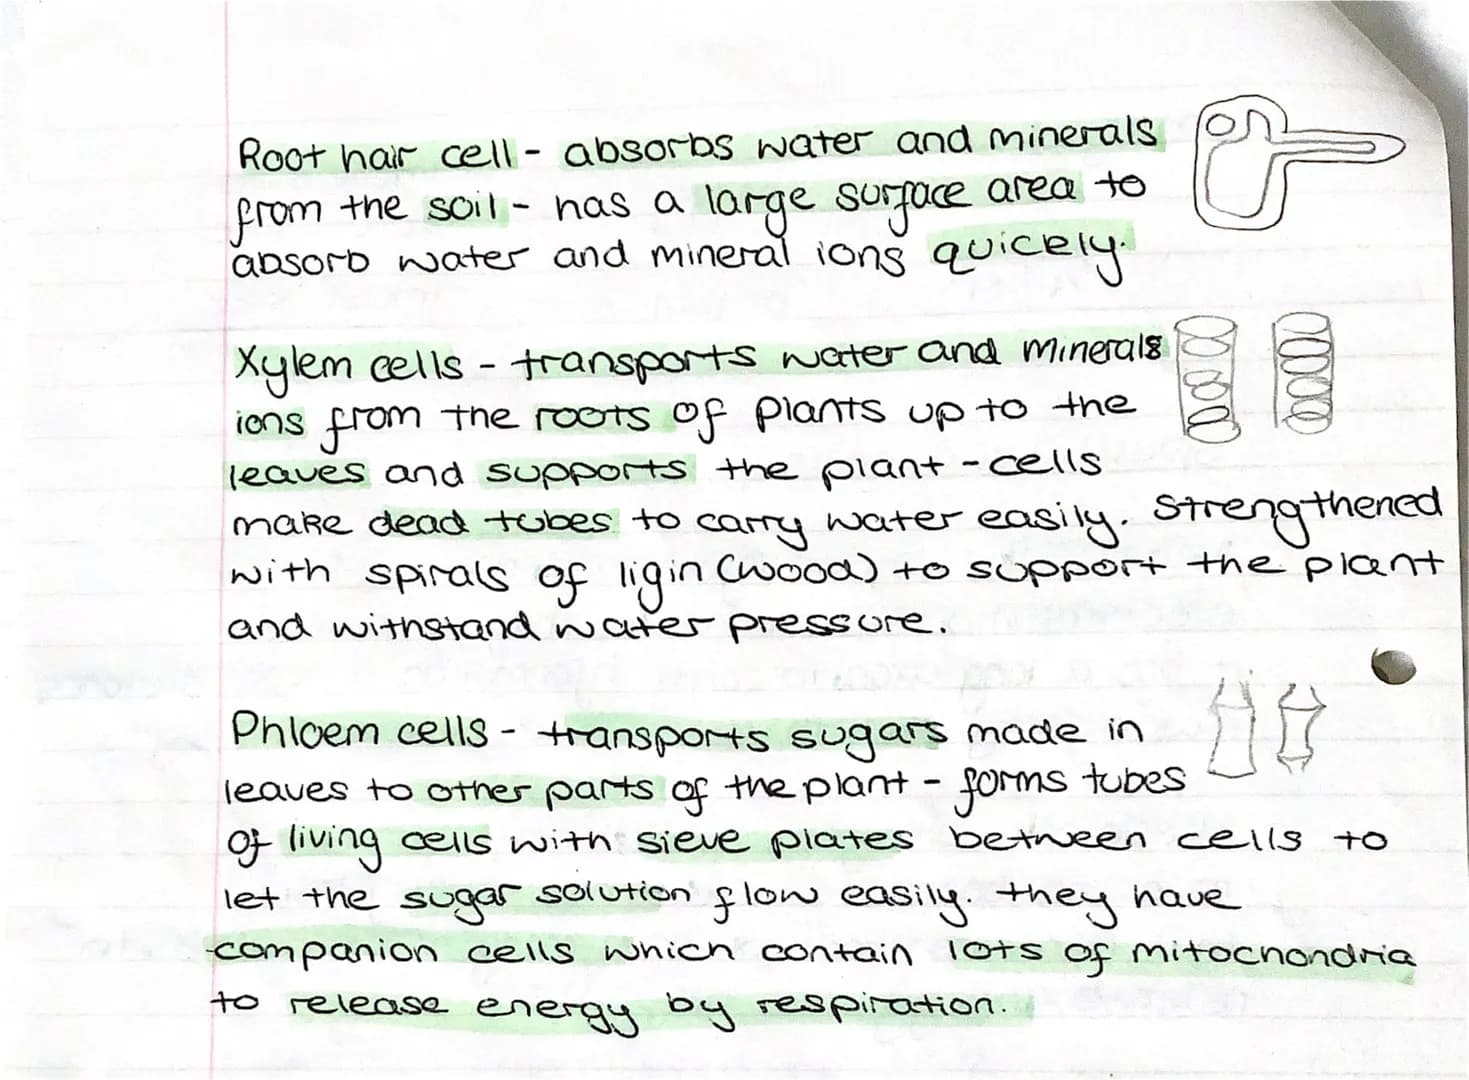 Root hair cell - absorbs water and minerals
from the soil - has a large surface area to
absorb water and mineral ions quicely.
Xylem cells - transports water and minerals
ions from the roots of plants up to the
leaves and supports the plant - cells
make dead tubes to carry water easily. Strengthened
with spirals of ligin (wood) to support the plant
and withstand water pressure.
Phloem cells - transports sugars made in
leaves to other parts of the plant - forms tubes
of living cells with sieve plates between cells to
let the sugar solution flow easily. they have
companion cells which contain lots of mitochondria
to release energy by respiration.